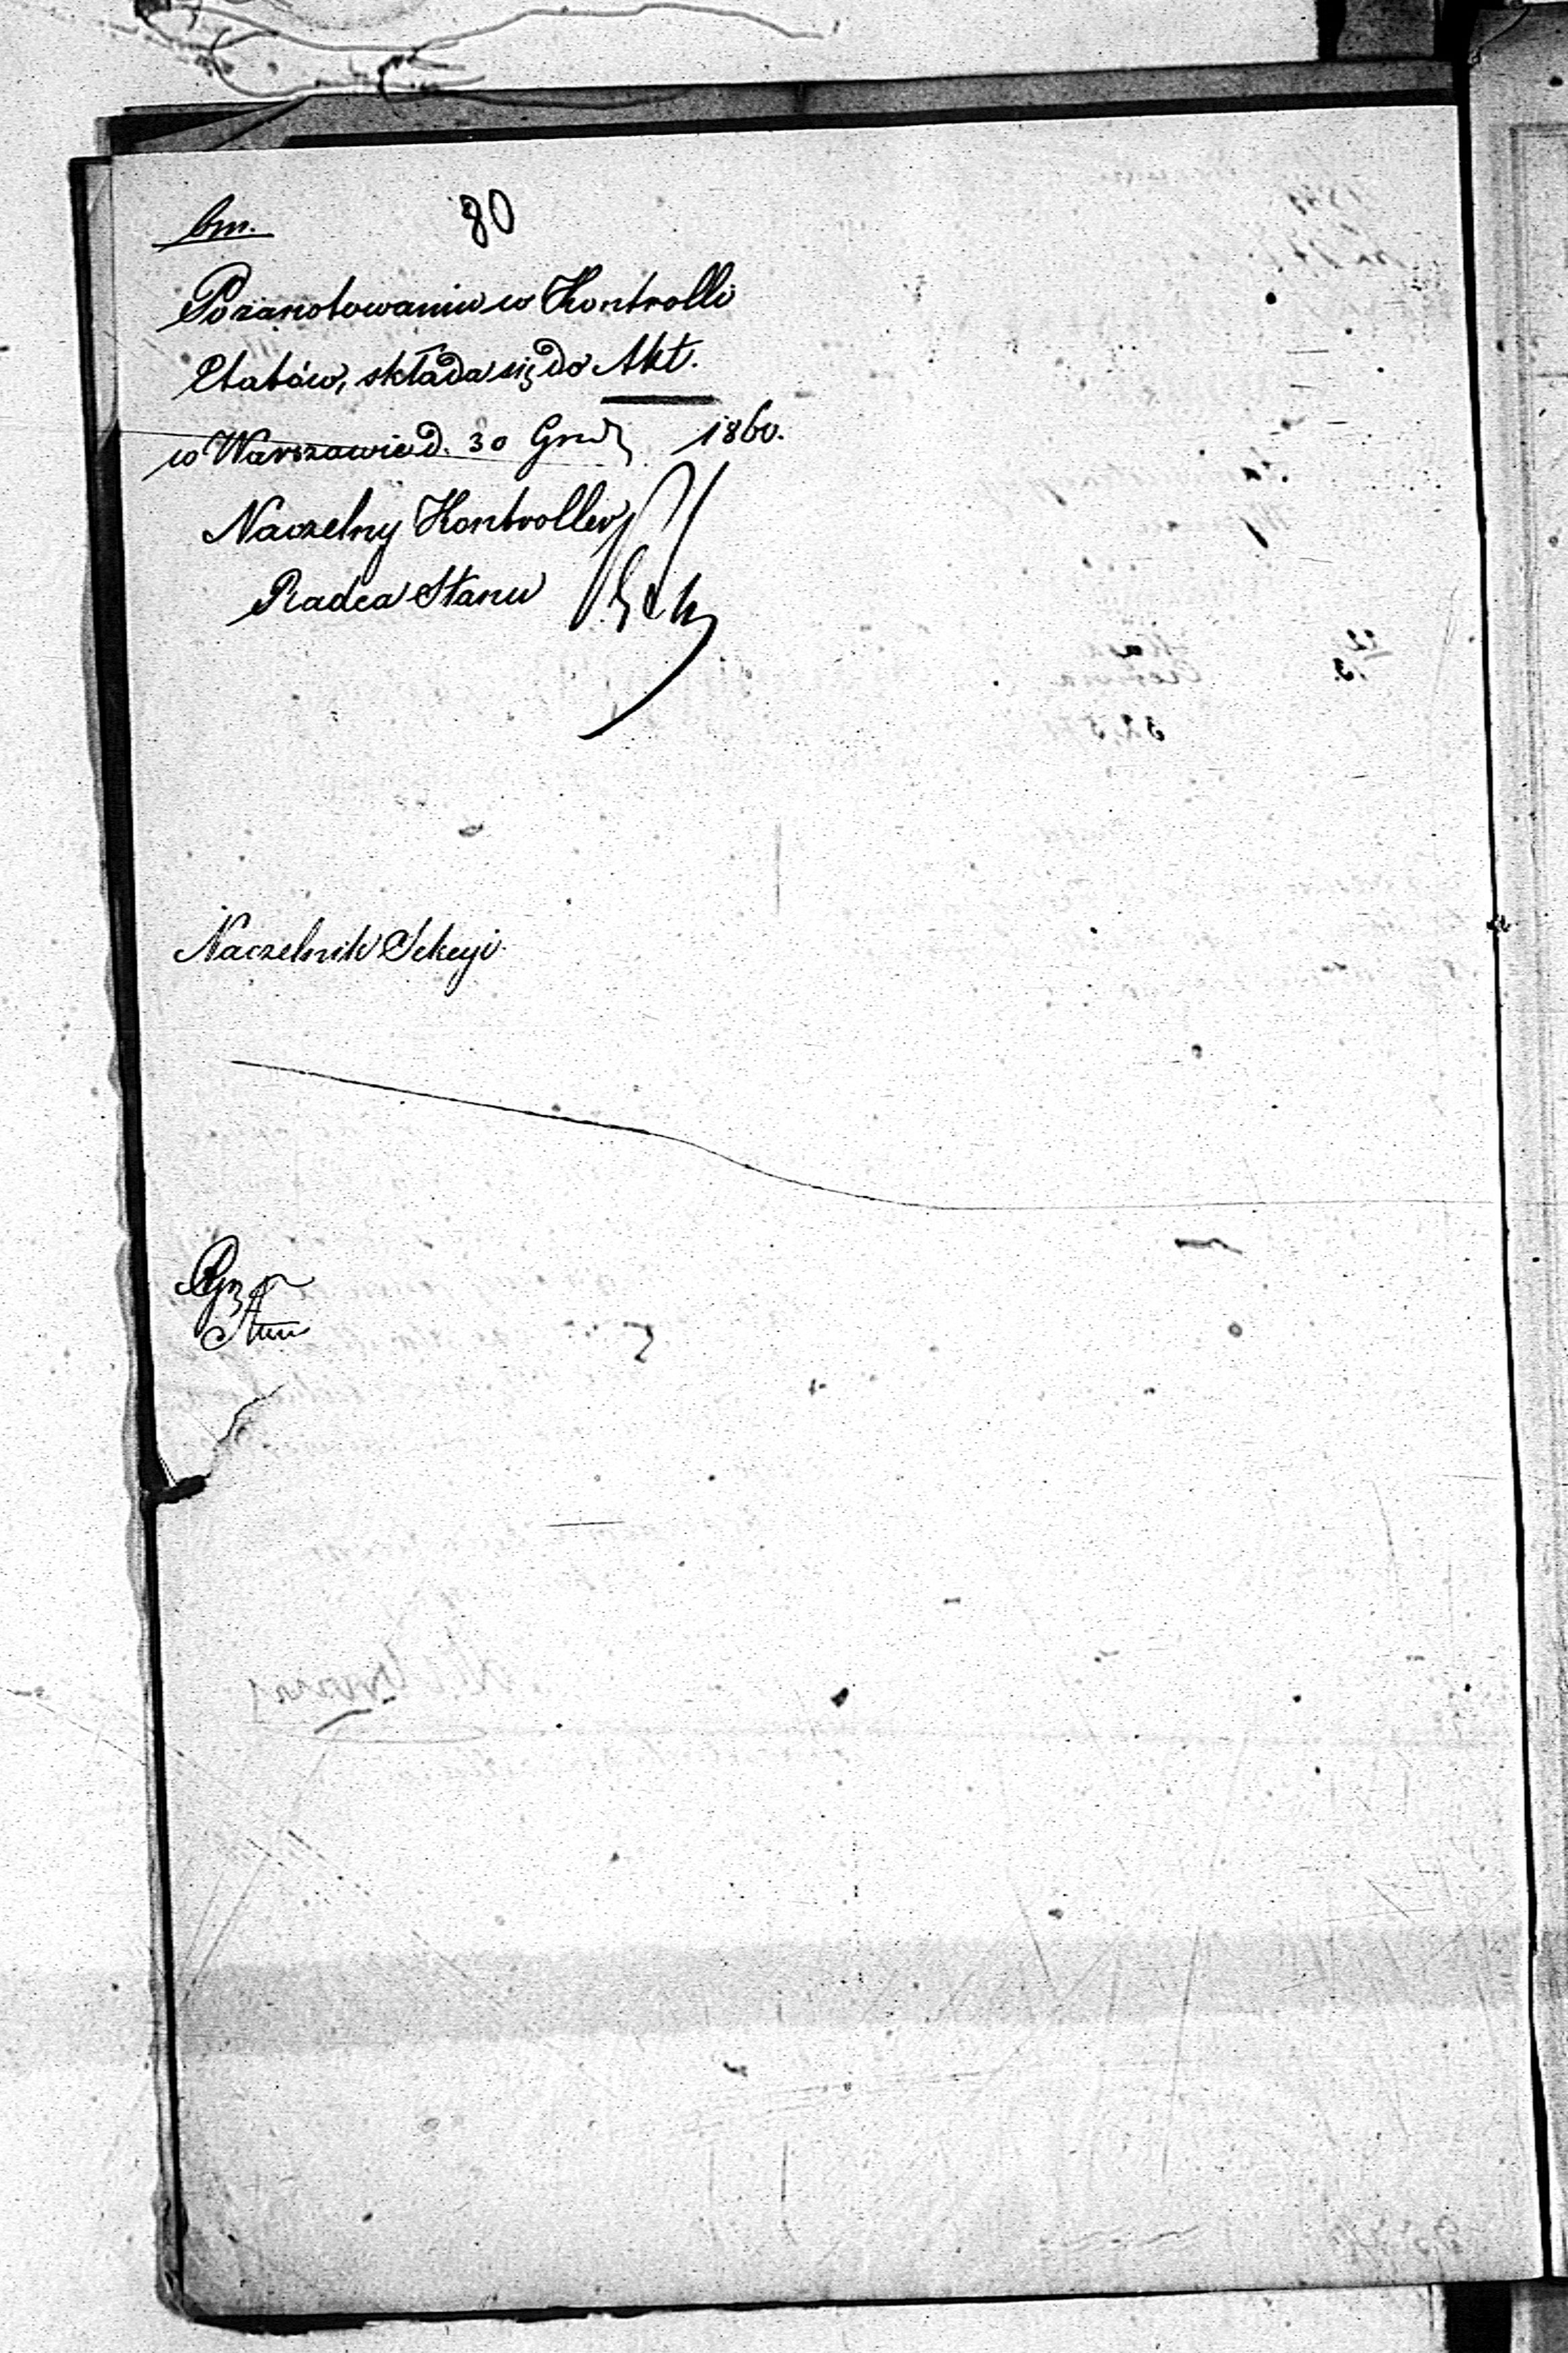 bm. 80
Pozanotowaniu w Kontrolli
Etatów, składa się do Akt.
w Warszawie d. 30 Grud 1860.
Naczelny Kontroller
Radca Stanu
Naczelnik Sekcyi